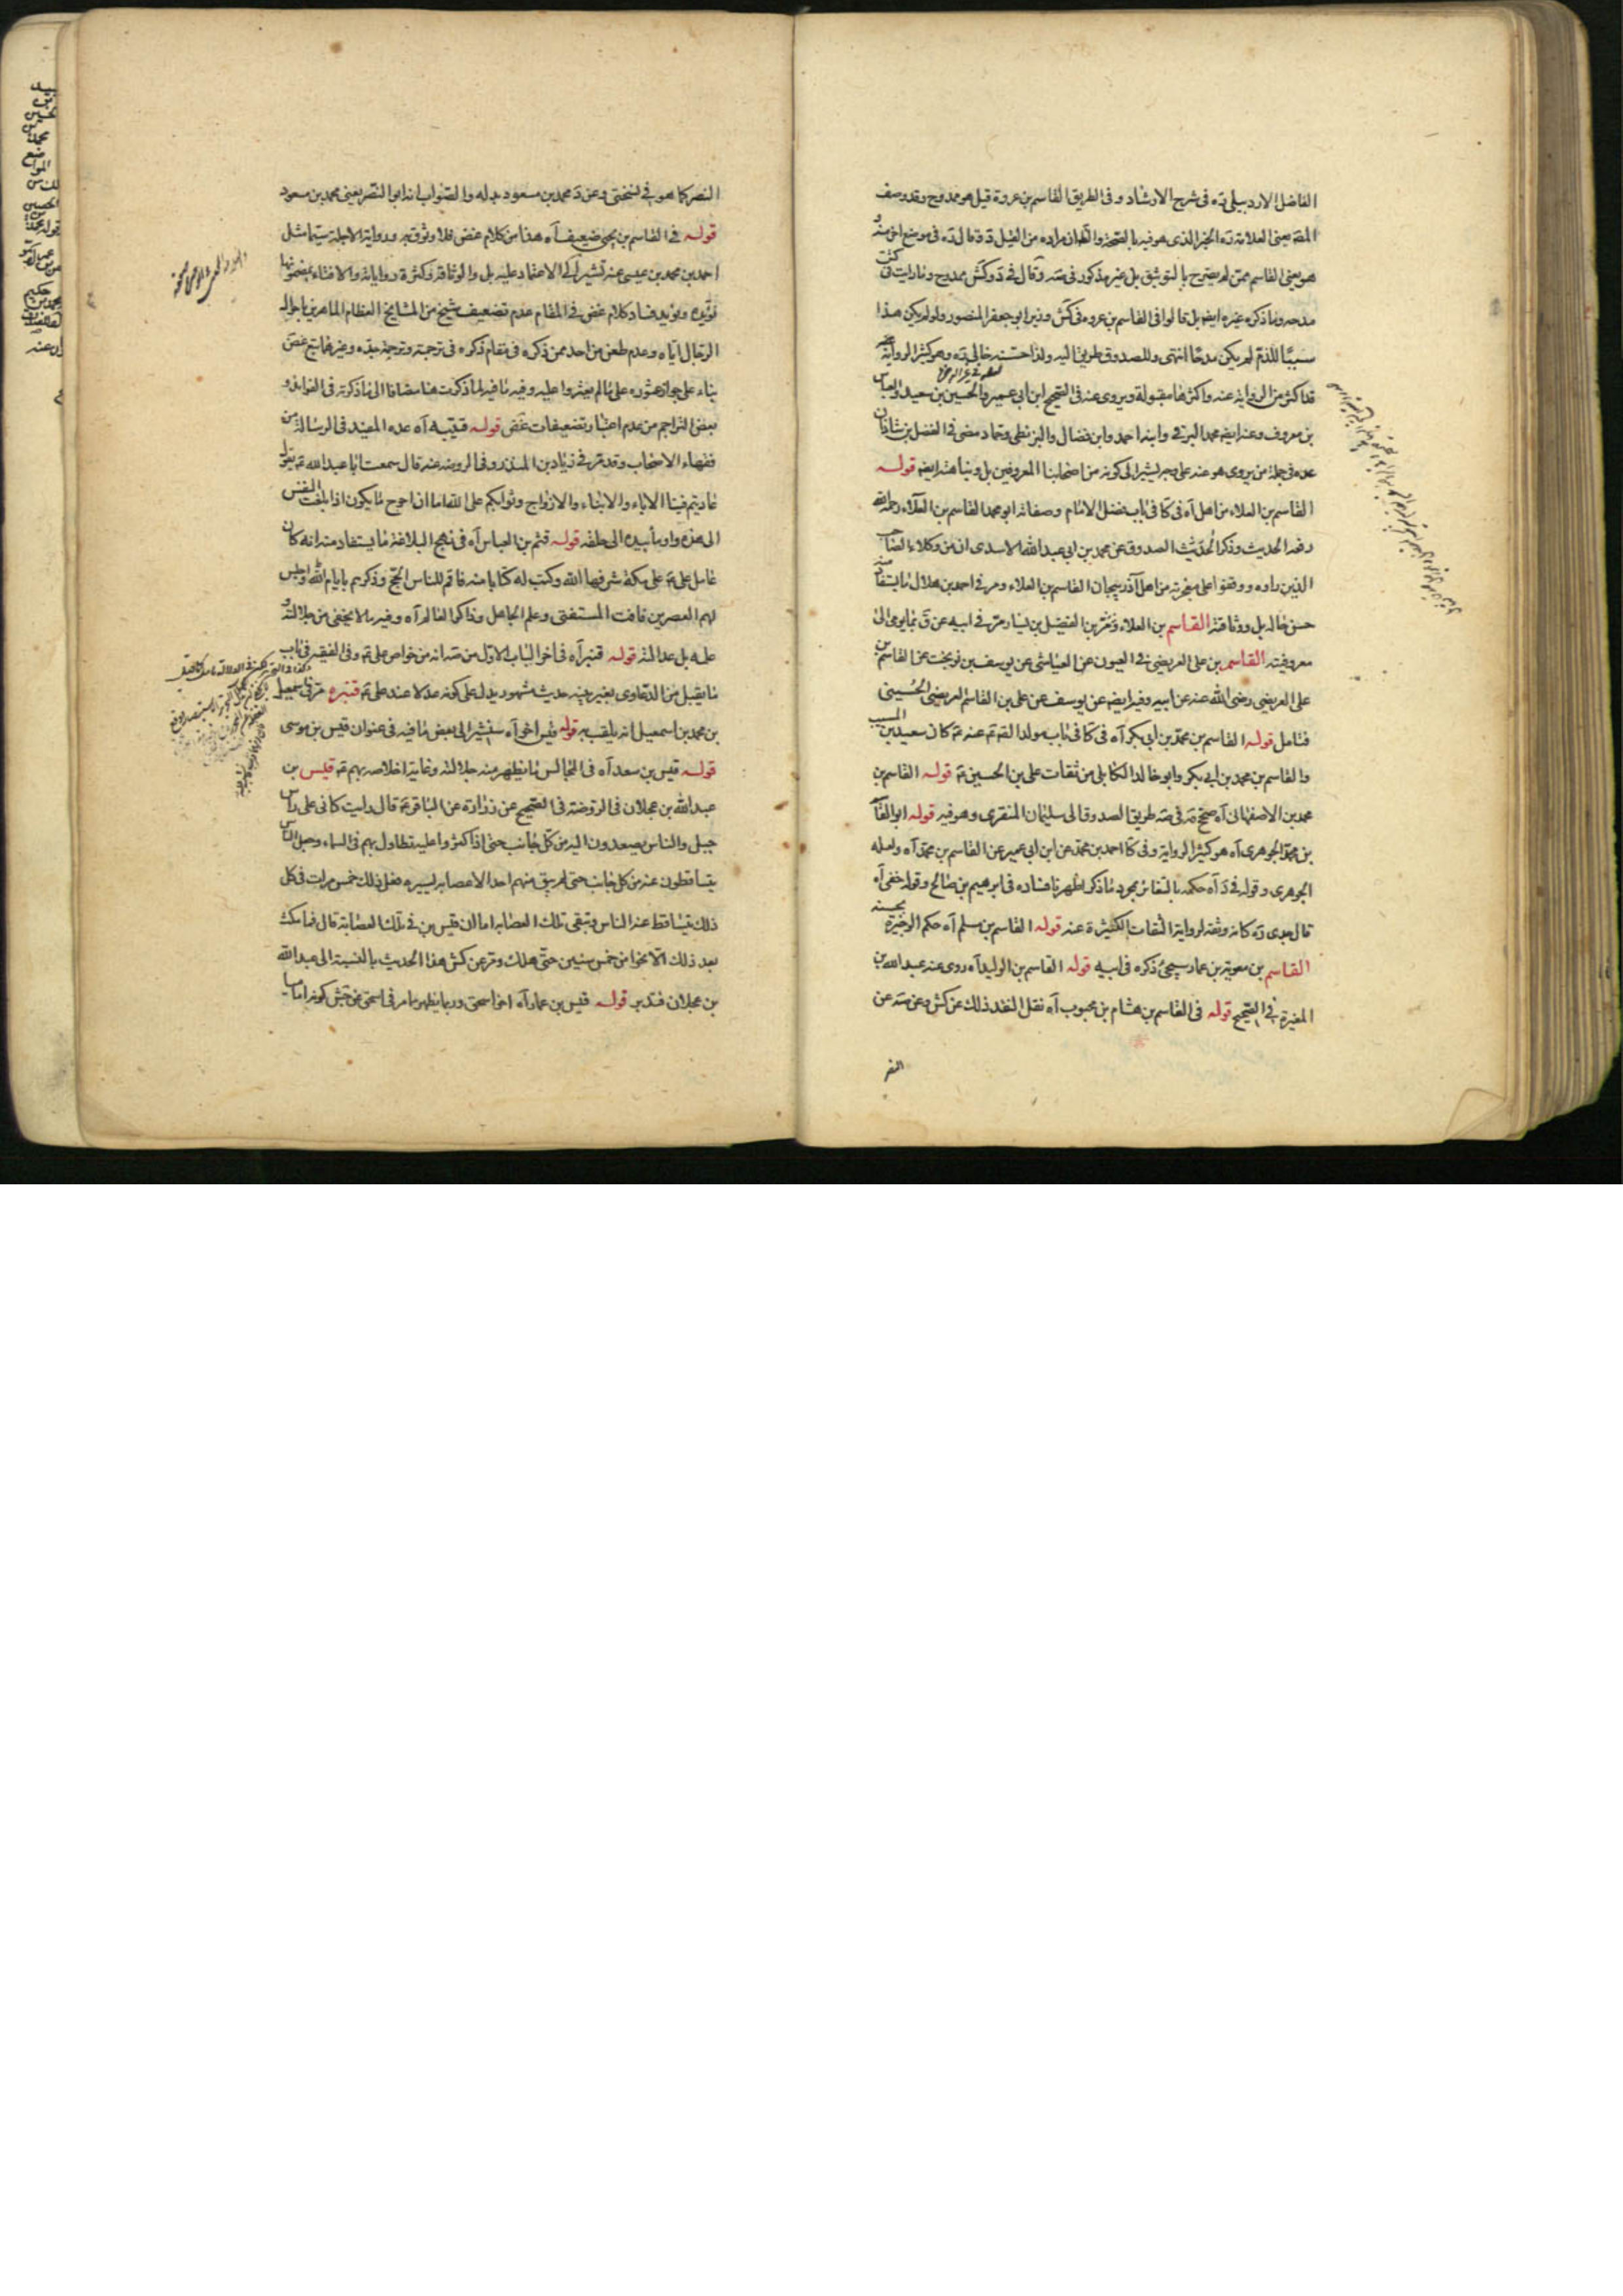 الفاضل الاردبيلى ره فى شرح الارشاد وفى الطريق القاسم بن عروة قيل هو ممدوح وقد وصف
المص يعنى العلامة ره الخبر الذى هو فيه بالصحة والظ ان مراده من القيل د قال ره فى موضع اخر منه
هو يعنى القاسم ممن لم يصرح بالتوثيق بل غير مذكور فى صه وقال فى د وكش ممدوح وما رايت فى كش
مدحه وما ذكره غيره ايضا بل قالوا فى القاسم بن عروه فى كش وزير ابو جعفر المنصور ولو لم يكن هذا
سببا للذم لم يكن مدحا انتهى وللصدوق طريق اليه ولذا حسنه خالى ره وهو كثير الرواية
قد اكثر من الرواية عنه واكثرها مقبولة ويروى عنه فى الصحيح ابن ابى عمير والحسين بن سعيد والعباس
بن معروف وعنه ايضا محمد البرقى وابنه احمد وابن فضال والبزنطى وحماد مضى فى الفضل بن شاذان
عده فى جملة من يروى هو عنه على وجه يشير الى كونه من اصحابنا المعروفين بل ونباهته ايضا قوله
القاسم بن العلاء من اهل آه فى كا فى باب فضل الامام وصفاته ابو محمد القاسم بن العلاء رحمه الله
رفعه الحديث وذكر المحدث الصدوق عن محمد بن ابى عبد الله الاسدى انه من وكلاء الصاحب
الذين راوه ووقفوا على معجزته من اهل آذربيجان القاسم بن العلاء ومر فى احمد بن هلال ما يستفاد منه
حسن حاله بل ووثاقته القاسم بن العلاء بن الفضيل بن يسار مر فى ابيه عن ق ما يومى الى
معروفيته القاسم بن على العريضى فى العيون عن العياشى عن يوسف بن نوبخت عن القاسم بن
على العريضى رضى الله عنه عن ابيه وفيه ايضا عن يوسف عن على بن القاسم العريضى الحسينى
فتامل قوله القاسم بن محمد بن ابى بكر آه فى كا فى باب مولد الصم عنه ع كان سعيد بن المسيب
والقاسم بن محمد بن ابى بكر وابو خالد الكابلى من ثقات على بن الحسين ع قوله القاسم بن
محمد بن الاصفهانى آه صحح مه فى صه طريق الصدوق الى سليمان المنقرى وهو فيه قوله ابو القا
بن محمد الجوهرى آه هو كثير الرواية وفى كا احمد بن محمد عن ابن ابى عمير عن القاسم بن محمد آه ولعله
الجوهرى وقوله فى د آه حكمه بالتغائر بمجرد ما ذكر اظهرنا فساده فى ابرهيم بن صالح وقوله خفى آه
قال جدى ره كانه وثقه لرواية الثقات الكثيرة عنه قوله القاسم بن مسلم آه حكم الوجيزة بحسنه
القاسم بن معوية بن عمار سيجئ ذكره فى ابيه قوله القاسم بن الوليد آه روى عنه عبد الله بن
المغيرة فى الصحيح قوله فى القاسم بن هشام بن محبوب آه نقل النقد ذلك عن كش وعن مه عن
النضر
النضر كما هو فى نسختى وعن د محمد بن مسعود بدله والصواب انه ابو النضر يعنى محمد بن مسعود
قوله فى القاسم بن يحيى ضعيف آه هذا من كلام غض فلا وثوق به ورواية الاجلة سيما مثل
احمد بن محمد بن عيسى عنه تشير الى الاعتماد عليه بل والوثاقة وكثرة رواياته والافتاء بمضمونها
تؤيده ويؤيد فساد كلام غض فى المقام عدم تضعيف شيخ من المشايخ العظام الماهرين باحوال
الرجال اياه وعدم طعن من احد ممن ذكره فى مقام ذكره فى ترجمته وترجمة جده وغيرهما مع غض
بناء على جواز عثوره على ما لم يعثروا عليه وفيه ما فيه لما ذكرت هنا مضافا الى ما ذكرته فى الفوائد و
بعض التراجم من عدم اعتبار تضعيفات غض قوله قتيبه آه عده المفيد فى الرسالة من
فقهاء الاصحاب وقد مر فى زياد بن المنذر وفى الروضه عنه قال سمعت ابا عبد الله ع يقول
عاديتم فينا الاباء والابناء والازواج وثوابكم على الله اما ان احوج ما يكون اذا بلغت النفس
الى هذه واومأ بيده الى حلقه قوله قثم بن العباس آه فى نهج البلاغة ما يستفاد منه انه كان
عامل على ع على مكة شرفها الله وكتب له كتابا منه فاقم للناس الحج وذكرهم بايام الله واجلس
لهم العصرين فافت المستفتى وعلم الجاهل وذاكر العالم آه وفيه ما لا يخفى من جلالته
علمه بل عدالته قوله قنبر آه فى اخر الباب الاول من صه انه من خواص على ع وفى الفقيه فى باب
ما يقبل من الدعاوى بغير بينه حديث مشهور يدل على كونه عدلا عند على ع قنبره مر فى اسمعيل
بن محمد بن اسمعيل انه يلقب به قوله قيس اخو آه سنشير الى بعض ما فيه فى عنوان قيس بن موسى
قوله قيس بن سعد آه فى المجالس ما يظهر منه جلالته وغاية اخلاصه بهم ع قيس بن
عبد الله بن عجلان فى الروضة فى الصحيح عن زرارة عن الباقر ع قال رايت كانى على راس
جبل والناس يصعدون اليه من كل جانب حتى اذا كثروا عليه تطاول بهم فى السماء وجعل الناس
يتساقطون عنه من كل جانب حتى لم يبق منهم احد الا عصابه يسيره ففعل ذلك خمس مرات فى كل
ذلك يتساقط عنه الناس وتبقى تلك العصابه اما ان قيس بن فى تلك العصابة قال فما مكث
بعد ذلك الا نحوا من خمس سنين حتى هلك ومر عن كش هذا الحديث بالنسبة الى عبد الله
بن عجلان فتدبر قوله قيس بن عمار آه اخو اسحق وربما يظهر مما مر فى اسحق عن جش كونه اماميا